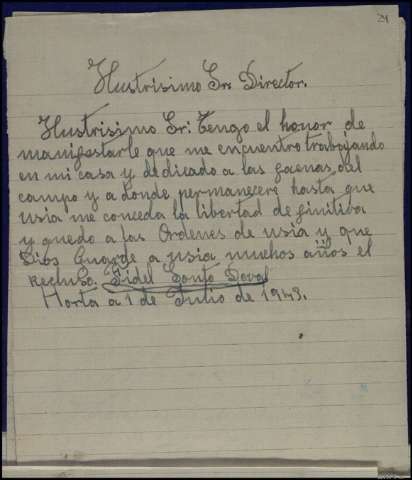 24
Ilustrisimo Sr. Director.
Ilustrisimo Sr: Tengo el honor de
manifestarle que me encuentro trabajando
en mi casa y dedicado a las faenas del
campo y a donde permaneceré hasta que
usia me conceda la libertad definitiva
y quedo a las Ordenes de usia y que
Dios Guarde a usia muchos años el
Recluso. Fidel Souto Doval
Horta a 1 de Julio de 1943.